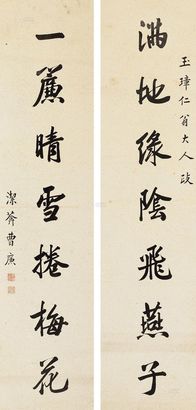 玉璋仁翁大人政
滿地綠陰飛燕子
一簾晴雪捲梅花
潔齋曹廣